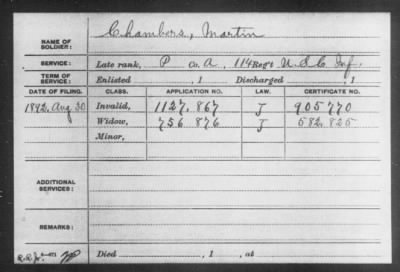 NAME OF SOLDIER: Chambers, Martin
SERVICE: Late rank, P Co. A, 114 Reg't U.S.C. Inf.
TERM OF SERVICE: Enlisted , 1 Discharged , 1
DATE OF FILING. CLASS. APPLICATION NO. LAW. CERTIFICATE NO.
1892, Aug 30 Invalid, 1127.867 J 905770
Widow, 756 876 J 582.825
Minor,
ADDITIONAL SERVICES:
REMARKS:
Died , 1 , at